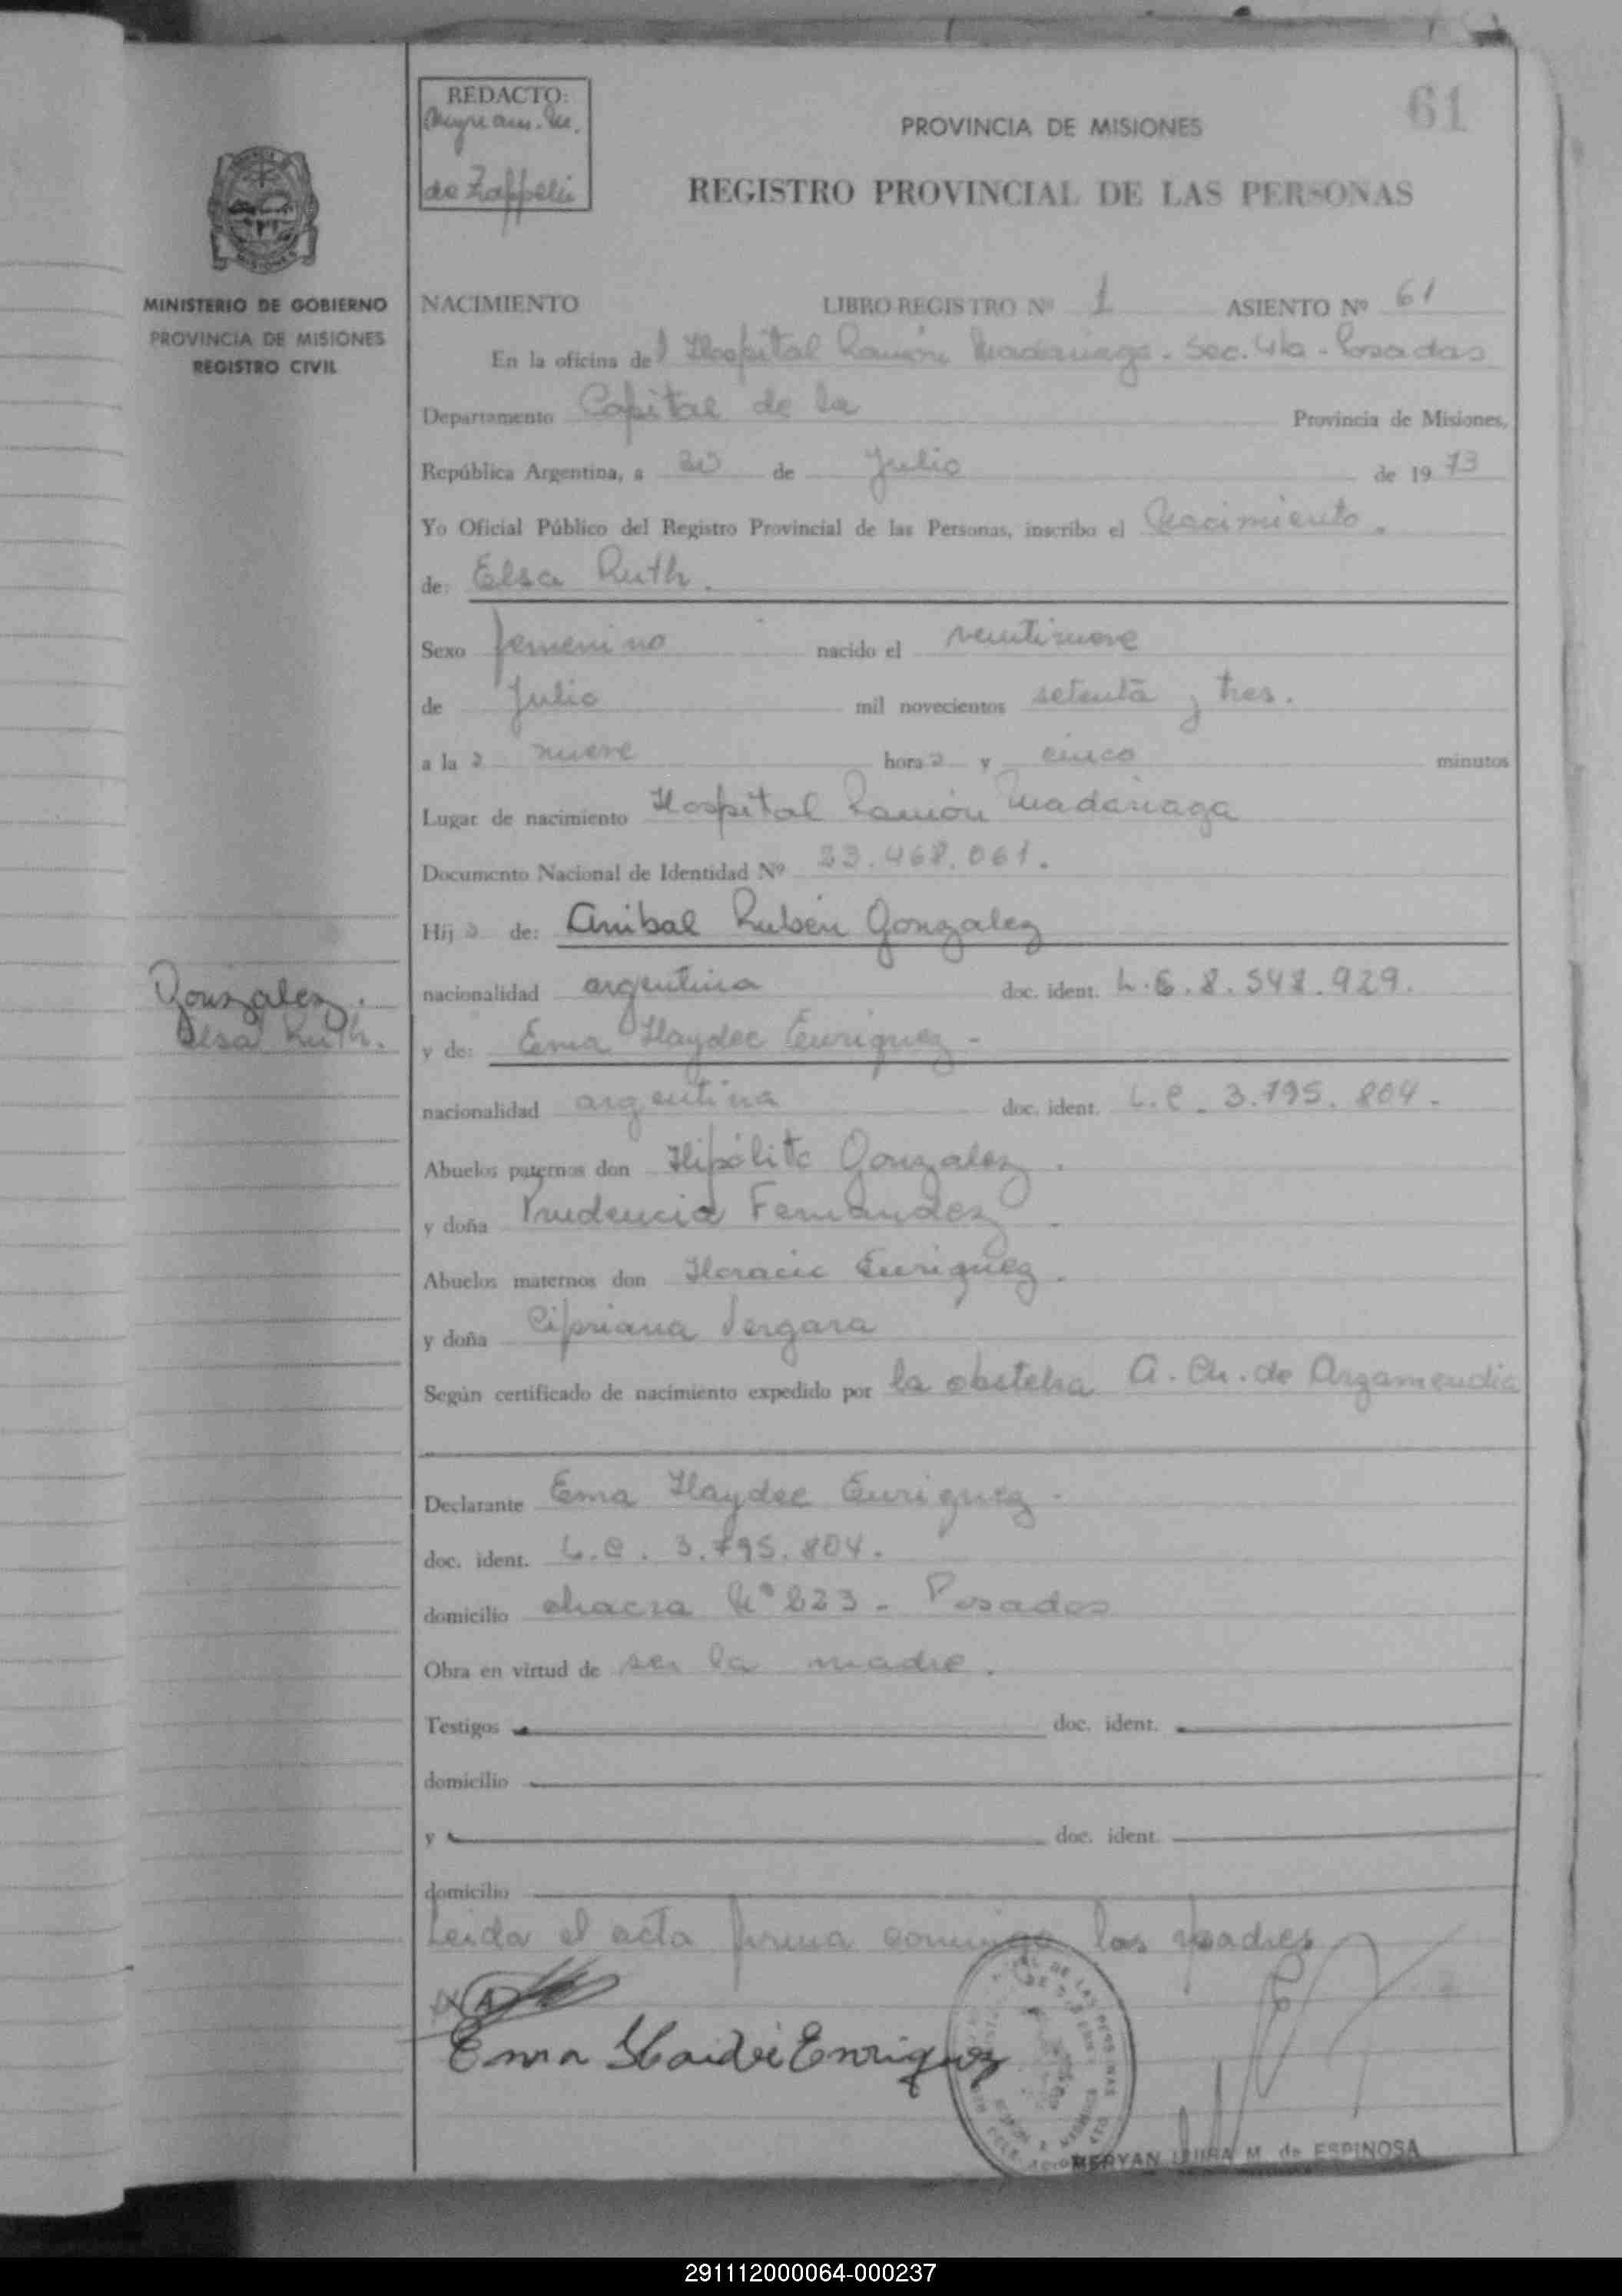 REDACTO:
de Zappelli
61
PROVINCIA DE MISIONES
REGISTRO PROVINCIAL DE LAS PERSONAS
MINISTERIO DE GOBIERNO
PROVINCIA DE MISIONES
REGISTRO CIVIL
NACIMIENTO LIBRO REGISTRO Nº 1 ASIENTO Nº 61
En la oficina del Hospital Ramón Madariaga. Sec. 4ta - Posadas
Departamento Capital de la Provincia de Misiones,
República Argentina, a de Julio de 1973
Yo Oficial Público del Registro Provincial de las Personas, inscribo el Nacimiento.
de: Elsa Ruth.
Sexo femenino nacido el veintinueve
de Julio mil novecientos setenta y tres.
a las nueve horas y cinco minutos
Lugar de nacimiento Hospital Ramón Madariaga
Documento Nacional de Identidad Nº 23.468.061.
Hija de: Anibal Rubén Gonzalez
nacionalidad argentina doc. ident. L.E.8.548.929.
Gonzalez.
Elsa Ruth.
y de: Ema Haydee Enriquez -
nacionalidad argentina doc. ident. L.C. 3.795.804.
Abuelos paternos don Hipólito Gonzalez.
y doña Prudencia Fernandez.
Abuelos maternos don Horacio Enriquez.
y doña Cipriana Vergara
Según certificado de nacimiento expedido por la obstetra A. Ch. de Argamendia
Declarante Ema Haydee Enriquez.
doc. ident. L.C. 3.795.804.
domicilio chacra Nº 223 - Posadas
Obra en virtud de ser la madre.
Testigos doc. ident.
domicilio
y doc. ident.
domicilio
Leida el acta firma conmigo los padres
Ema Haideé Enriquez
MERYAN LUISA M. de ESPINOSA
291112000064-000237